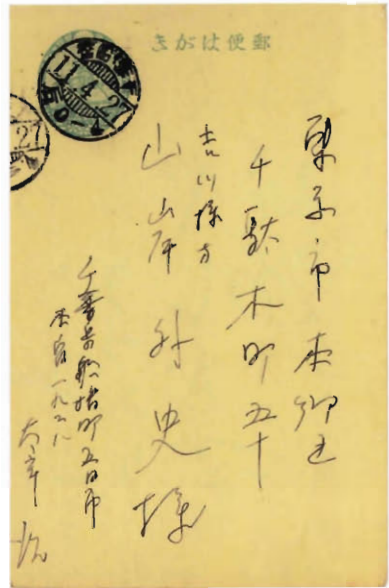 郵便はがき
11.4.27
27
東京市本郷区
千駄木町五十
吉川様方
山岸外史様
千葉県船橋町五日市
本宿一九二八
太宰治